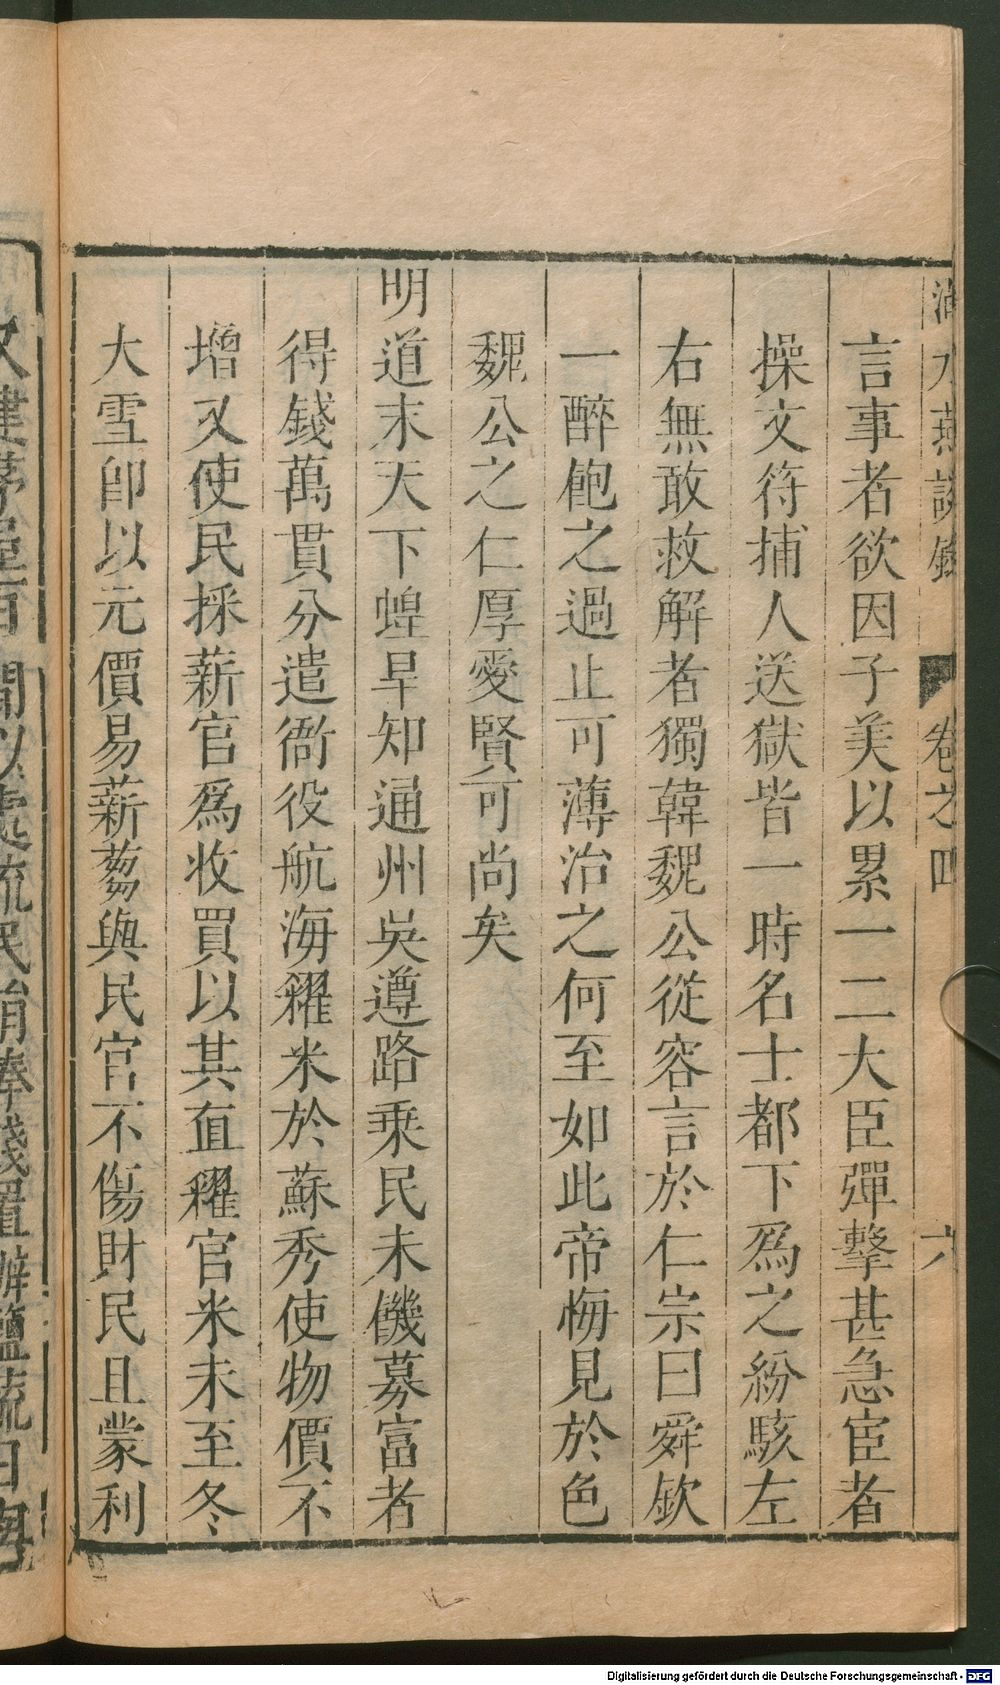 澠水燕談錄 卷之四 六
言事者欲因子美以累一二大臣彈擊甚急宦者
操文符捕人送獄皆一時名士都下爲之紛駭左
右無敢救解者獨韓魏公從容言於仁宗曰舜欽
一醉飽之過止可薄治之何至如此帝悔見於色
魏公之仁厚愛賢可尚矣
明道末天下蝗旱知通州吳遵路乘民未饑募富者
得錢萬貫分遣衙役航海糴米於蘇秀使物價不
增又使民採薪官爲收買以其直糴官米未至冬
大雪卽以元價易薪蒭與民官不傷財民且蒙利
又建茅屋百間以處流民捐俸錢置辦鹽蔬日與
Digitalisierung gefördert durch die Deutsche Forschungsgemeinschaft - DFG